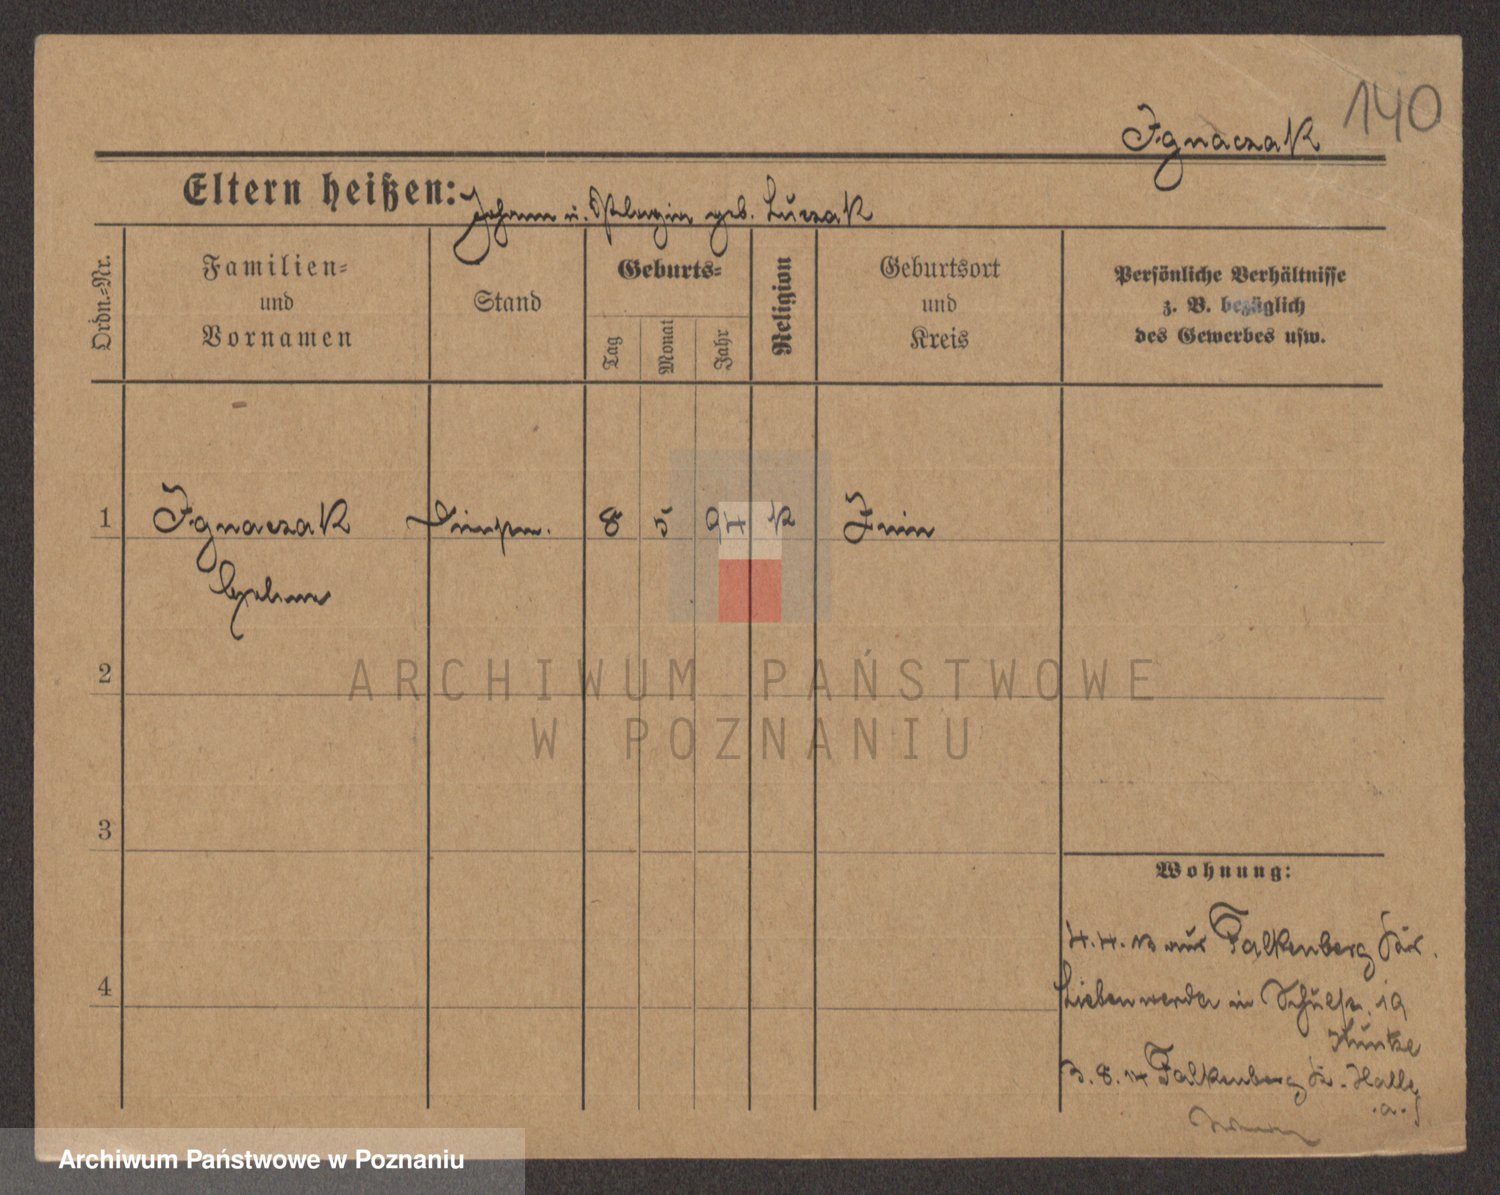 140
Ignaczak
Eltern heißen: Johann u. Pelagia geb. Luczak
Ordn.-Nr.
Familien-
und
Vornamen
Stand
Geburts-
Tag
Monat
Jahr
Religion
Geburtsort
und
Kreis
Persönliche Verhältnisse
z. B. bezüglich
des Gewerbes usw.
1 Ignaczak 8 5 94 k Znin
2
ARCHIWUM PAŃSTWOWE
W POZNANIU
3
Wohnung:
4.4.13 aus Falkenberg Kr.
4
Liebenwerda in Schulstr. 19
Kunke
3.8.14 Falkenberg Kr. Halle
a. S
Archiwum Państwowe w Poznaniu